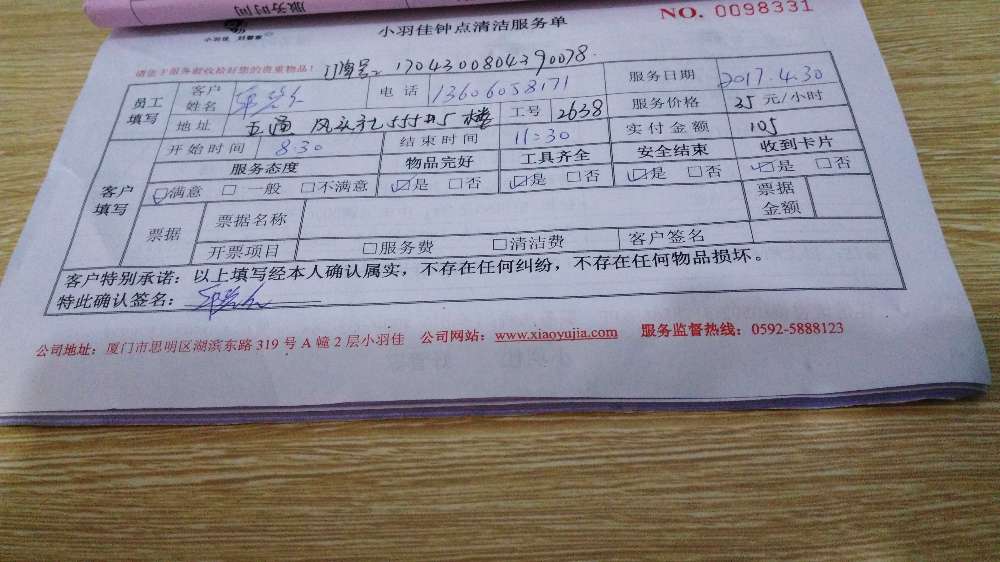 服务时间
小羽佳 好管家
小羽佳钟点清洁服务单
NO. 0098331
请您于服务前收拾好您的贵重物品!
订单号: 1704300804390078
员工填写 客户姓名 电话 13606058171 服务日期 2017.4.30
地址 工号 2638 服务价格 35 元/小时
客户填写 开始时间 8:30 结束时间 11:30 实付金额 105
服务态度 物品完好 工具齐全 安全结束 收到卡片
☑满意 □一般 □不满意 ☑是 □否 ☑是 □否 ☑是 □否 ☑是 □否
票据 票据名称 票据金额
开票项目 □服务费 □清洁费 客户签名
客户特别承诺:以上填写经本人确认属实,不存在任何纠纷,不存在任何物品损坏。
特此确认签名:
公司地址:厦门市思明区湖滨东路 319 号 A 幢 2 层小羽佳 公司网站:www.xiaoyujia.com 服务监督热线:0592-5888123